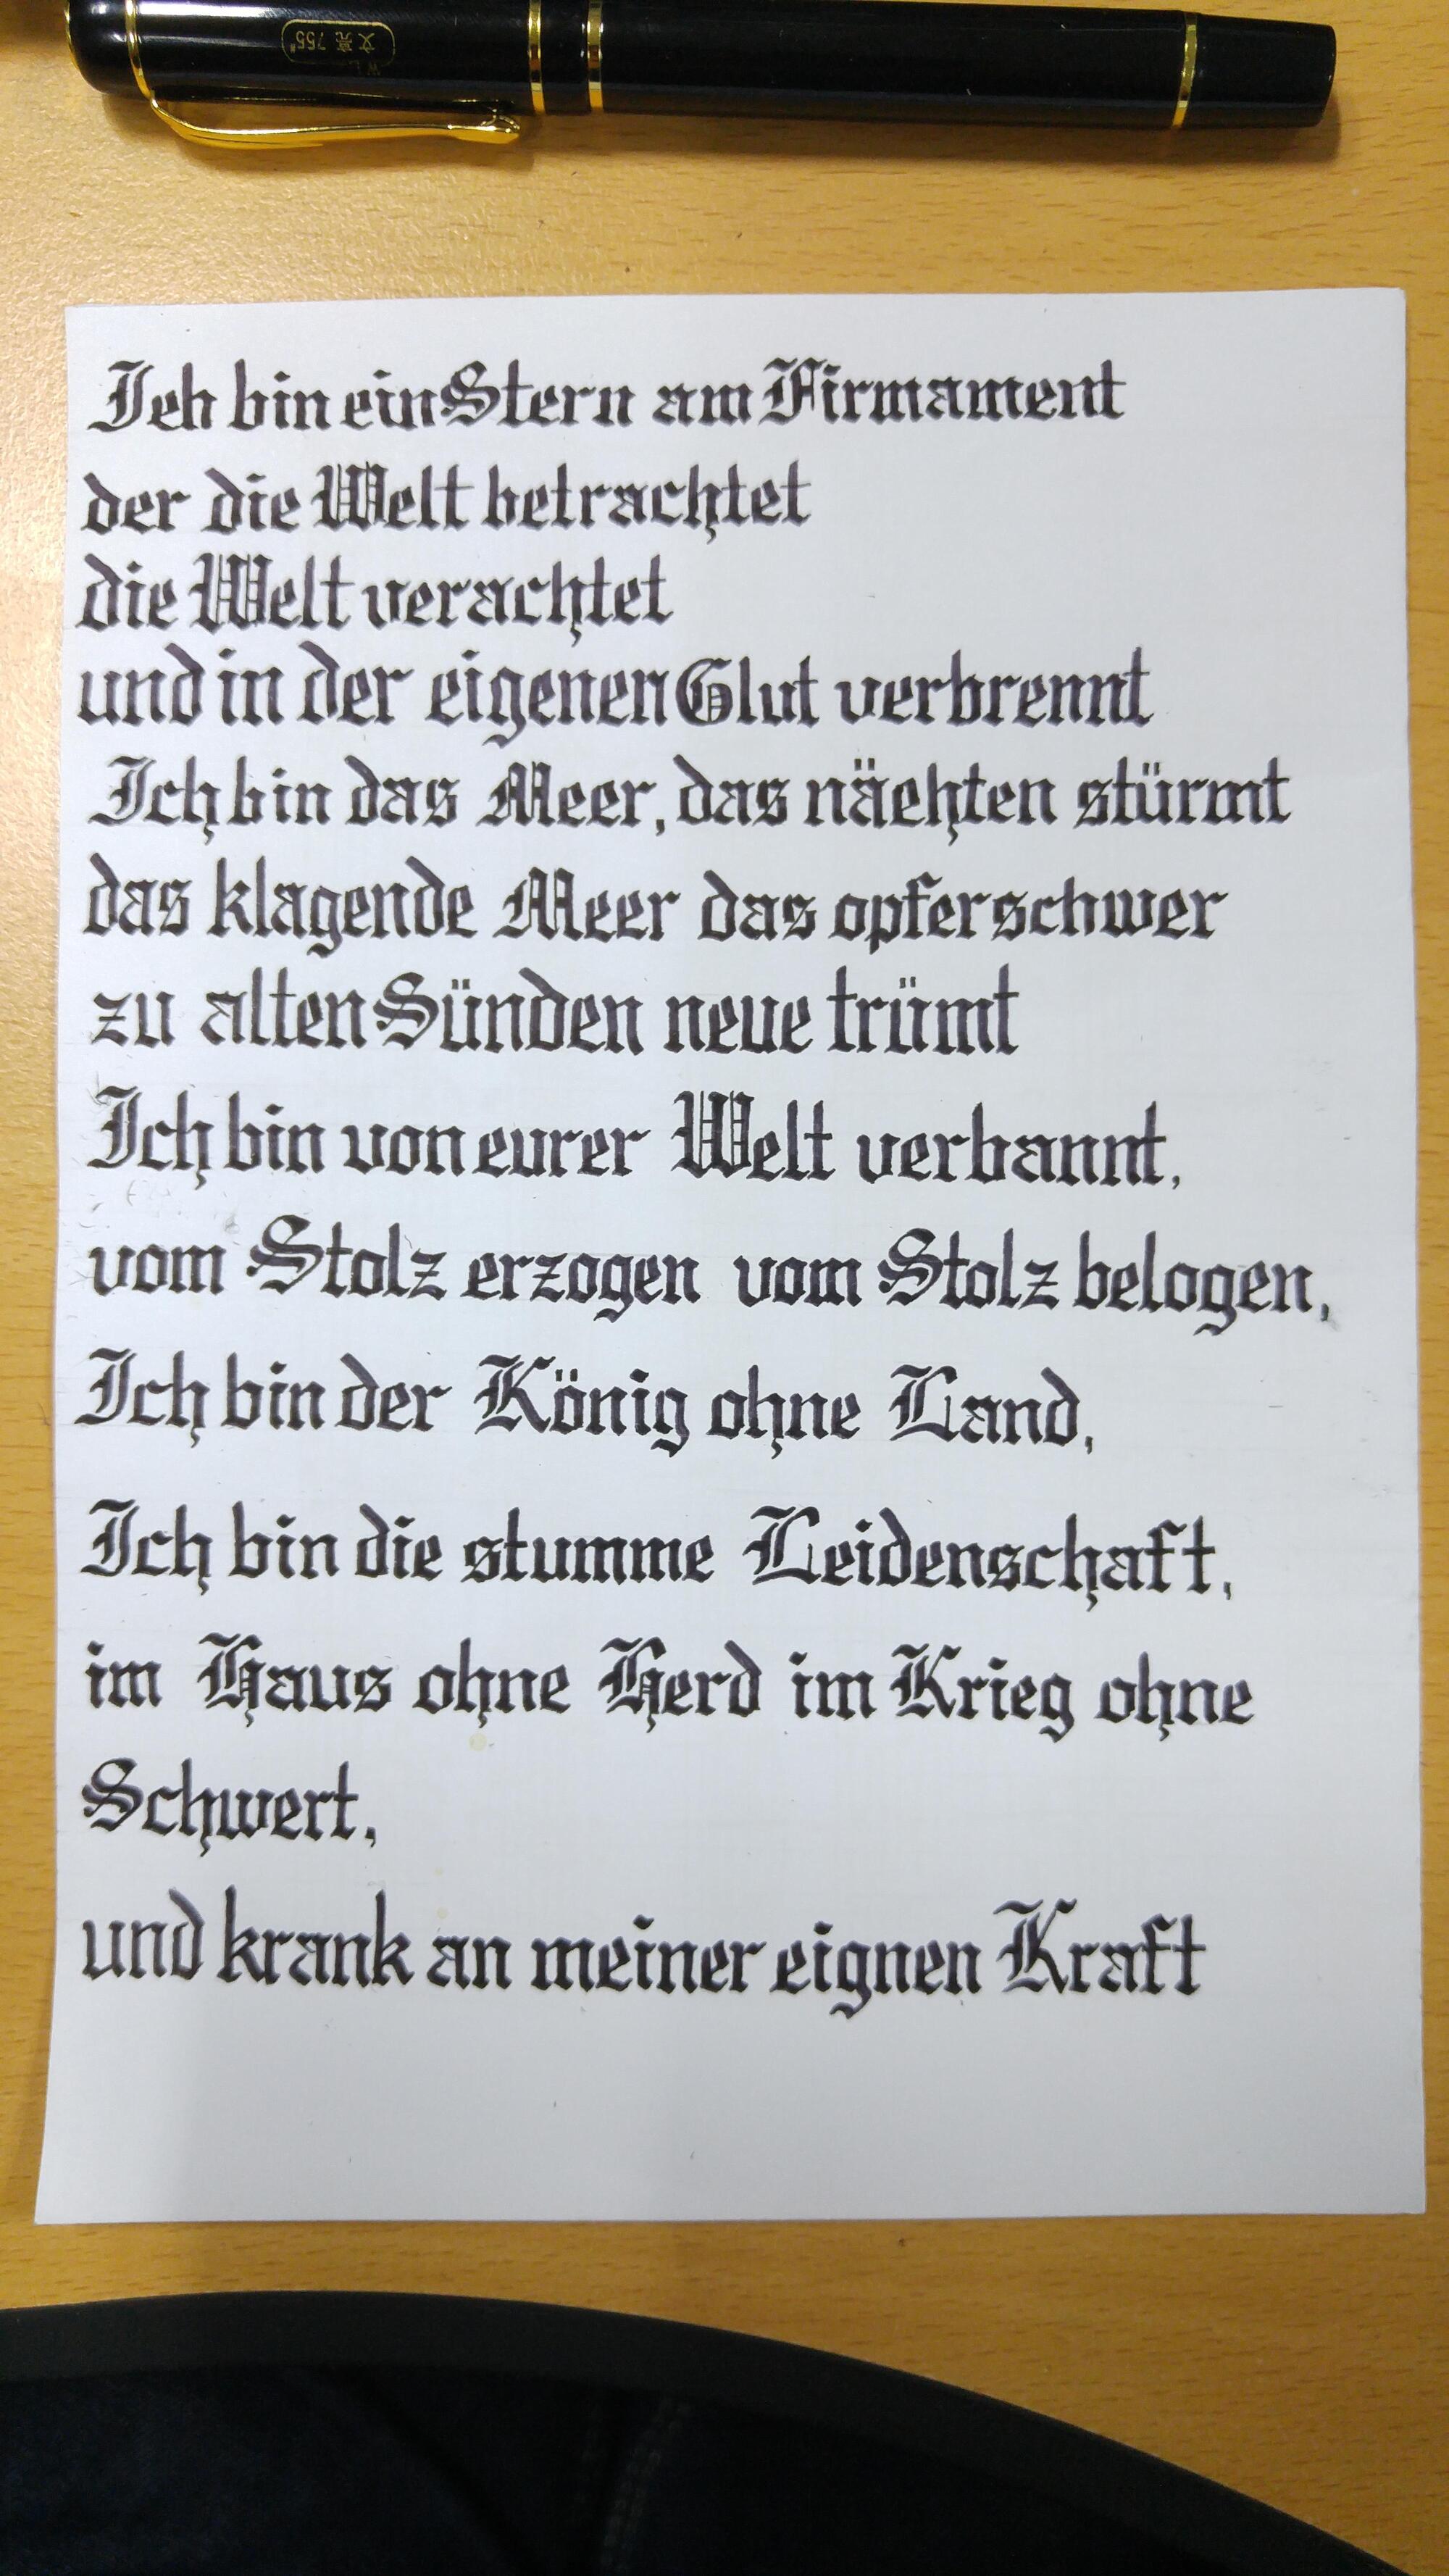 文亮 755
Ich bin ein Stern am Firmament
der die Welt betrachtet
die Welt verachtet
und in der eigenen Glut verbrennt
Ich bin das Meer, das nächten stürmt
das klagende Meer das opferschwer
zu alten Sünden neue trümt
Ich bin von eurer Welt verbannt,
vom Stolz erzogen vom Stolz belogen,
Ich bin der König ohne Land,
Ich bin die stumme Leidenschaft,
im Haus ohne Herd im Krieg ohne
Schwert,
und krank an meiner eignen Kraft